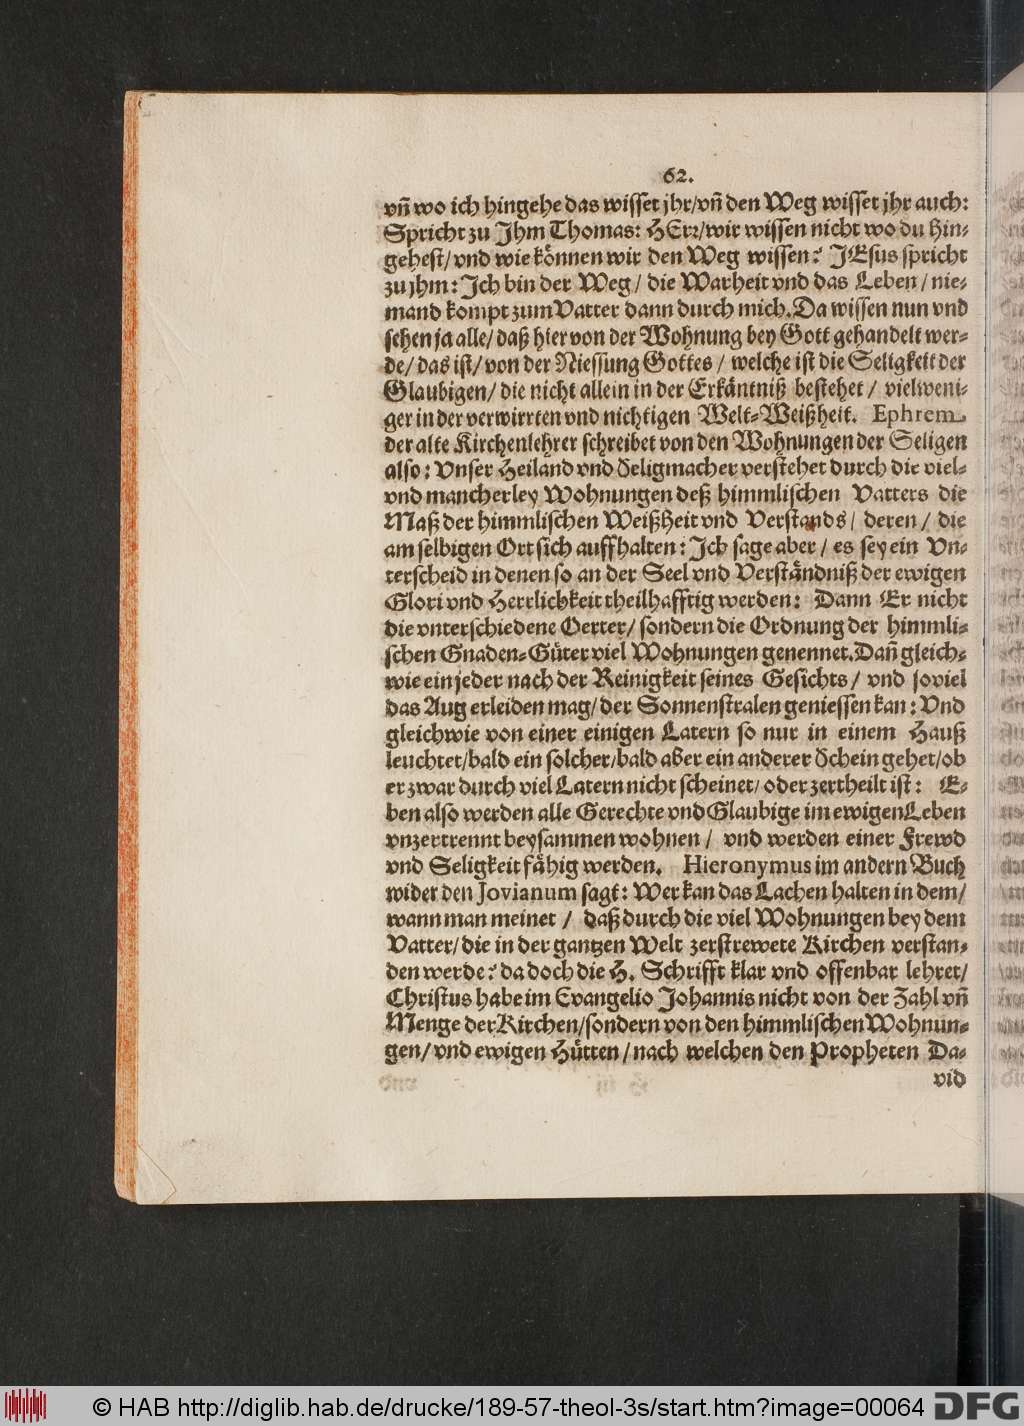 62.
vñ wo ich hingehe das wisset jhr/vñ den Weg wisset jhr auch:
Spricht zu Jhm Thomas: HErr/wir wissen nicht wo du hin-
gehest/vnd wie können wir den Weg wissen? JEsus spricht
zu jhm: Jch bin der Weg/ die Warheit vnd das Leben/ nie-
mand kompt zum Vatter dann durch mich. Da wissen nun vnd
sehen ja alle/ daß hier von der Wohnung bey Gott gehandelt wer-
de/ das ist/ von der Niessung Gottes/ welche ist die Seligkeit der
Glaubigen/ die nicht allein in der Erkäntniß bestehet/ vielweni-
ger in der verwirrten vnd nichtigen Welt-Weißheit. Ephrem
der alte Kirchenlehrer schreibet von den Wohnungen der Seligen
also: Vnser Heiland vnd Seligmacher verstehet durch die viel-
vnd mancherley Wohnungen deß himmlischen Vatters die
Maß der himmlischen Weißheit vnd Verstands/ deren/ die
am selbigen Ort sich auffhalten: Jch sage aber/ es sey ein Vn-
terscheid in denen so an der Seel vnd Verständniß der ewigen
Glori vnd Herrlichkeit theilhafftig werden: Dann Er nicht
die vnterschiedene Oerter/ sondern die Ordnung der himmli-
schen Gnaden-Güter viel Wohnungen genennet. Dañ gleich-
wie ein jeder nach der Reinigkeit seines Gesichts/ vnd soviel
das Aug erleiden mag/ der Sonnenstralen geniessen kan: Vnd
gleichwie von einer einigen Latern so nur in einem Hauß
leuchtet/bald ein solcher/bald aber ein anderer Schein gehet/ob
er zwar durch viel Latern nicht scheinet/ oder zertheilt ist: E-
ben also werden alle Gerechte vnd Glaubige im ewigen Leben
vnzertrennt beysammen wohnen/ vnd werden einer Frewd
vnd Seligkeit fähig werden. Hieronymus im andern Buch
wider den Jovianum sagt: Wer kan das Lachen halten in dem/
wann man meinet/ daß durch die viel Wohnungen bey dem
Vatter/ die in der gantzen Welt zerstrewete Kirchen verstan-
den werde? da doch die H. Schrifft klar vnd offenbar lehret/
Christus habe im Evangelio Johannis nicht von der Zahl vñ
Menge der Kirchen/sondern von den himmlischen Wohnun-
gen/ vnd ewigen Hütten/ nach welchen den Propheten Da-
vid
© HAB http://diglib.hab.de/drucke/189-57-theol-3s/start.htm?image=00064
DFG